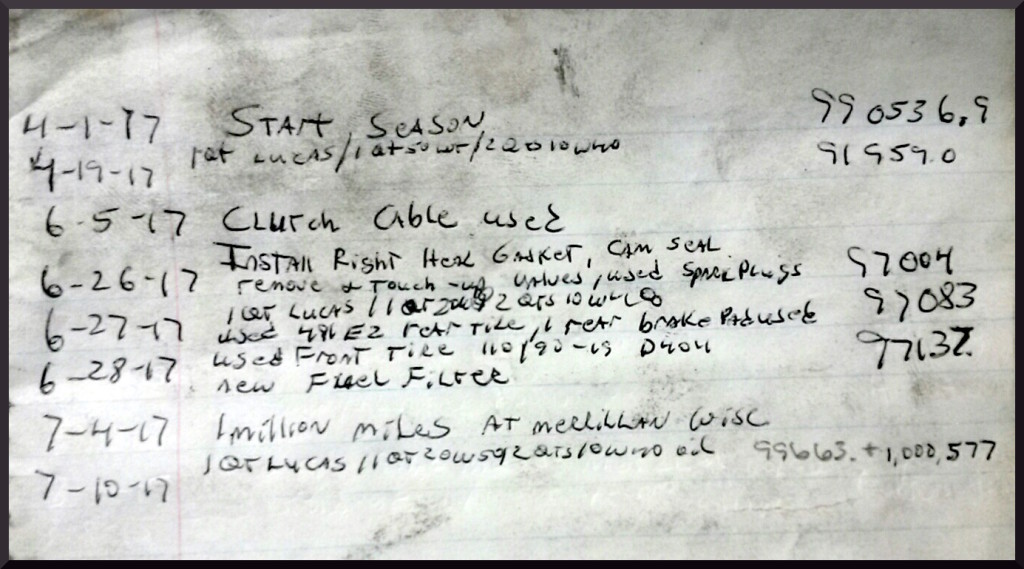 4-1-17 START SEASON 990536.9
4-19-17 1QT LUCAS/1QT50WT/2QTS10W40 91959.0
6-5-17 CLUTCH CABLE used
INSTALL Right HEAD GASKET, CAM SEAL
6-26-17 remove & Touch-up VALVES, used SPARK PLUGS 97004
1QT LUCAS/1QT20W50 2QTS10W40
6-27-17 used 491E2 reAr Tire, 1 reAr brAke PAD used 97083
used Front Tire 110/90-19 D404
6-28-17 new Fuel FILTER 97137.
7-4-17 1million miles AT merrillAN Wisc
7-10-17 1QT LUCAS/1QT20W50 2QTS10W40 oil 99663.+1,000,577